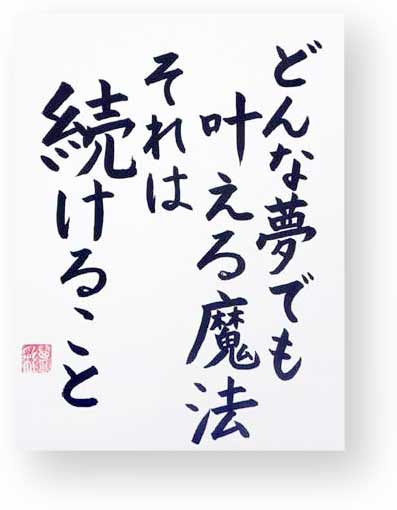 どんな夢でも
叶える魔法
それは
続けること